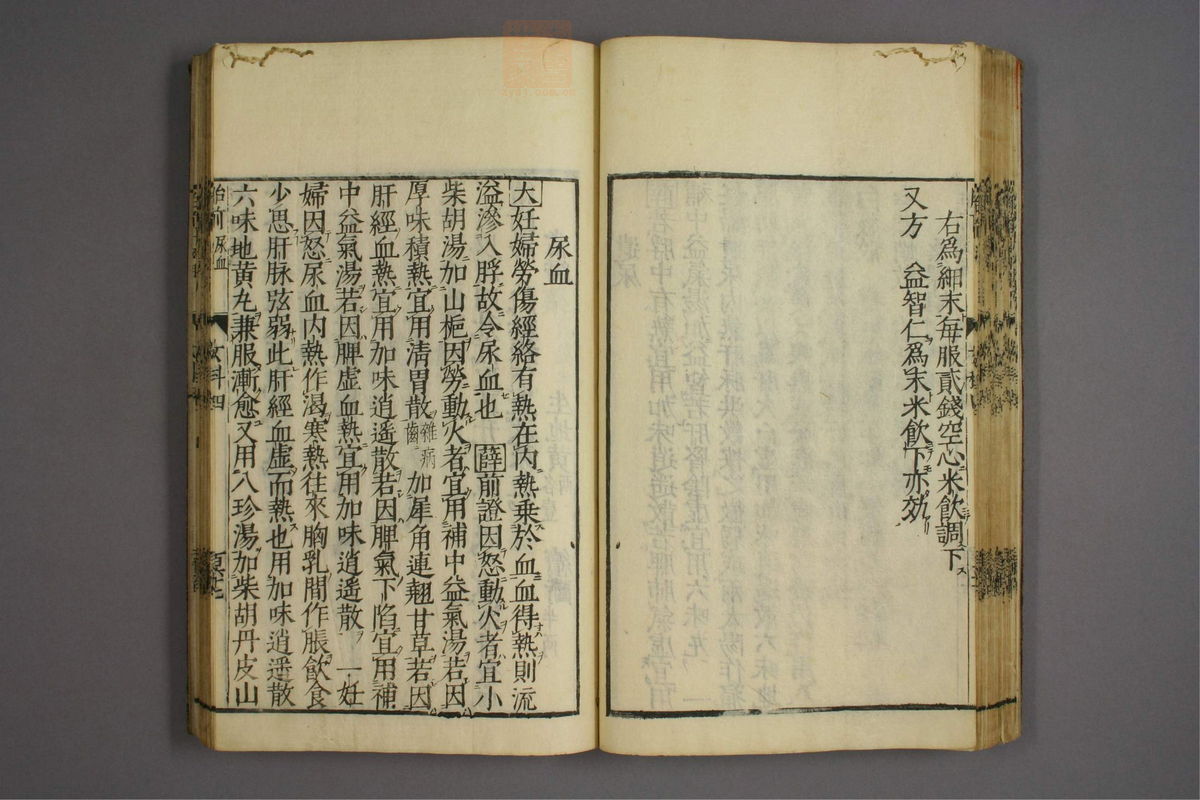 右爲細末每服貳錢空心米飲調下
又方 益智仁爲末米飲下亦効
尿血
大妊婦勞傷經絡有熱在內熱乘於血血得熱則流
溢滲入脬故令尿血也 薛前證因怒動火者宜小
柴胡湯加山梔因勞動火者宜用補中益氣湯若因
厚味積熱宜用清胃散雜病齒加犀角連翹甘草若因
肝經血熱宜用加味逍遙散若因脾氣下陷宜用補
中益氣湯若因脾虛血熱宜用加味逍遙散 一妊
婦因怒尿血內熱作渴寒熱往來胸乳間作脹飲食
少思肝脉弦弱此肝經血虛而熱也用加味逍遥散
六味地黄丸兼服漸愈又用八珍湯加柴胡丹皮山
胎前 尿血 女科四